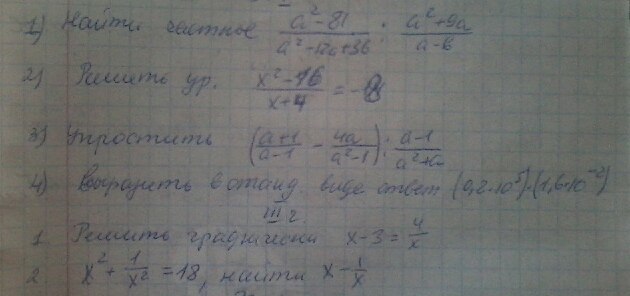 1) Найти частное (a² - 81)/(a² - 12a + 36) : (a² + 9a)/(a - 6)
2) Решить ур. (x² - 16)/(x + 4) = -8
3) Упростить ((a+1)/(a-1) - 4a/(a²-1)) : (a-1)/(a²+a)
4) Выразить в станд. виде ответ (0,2·10⁵)·(1,6·10⁻²)
III г.
1 Решить графически x - 3 = 4/x
2 x² + 1/x² = 18, найти x - 1/x